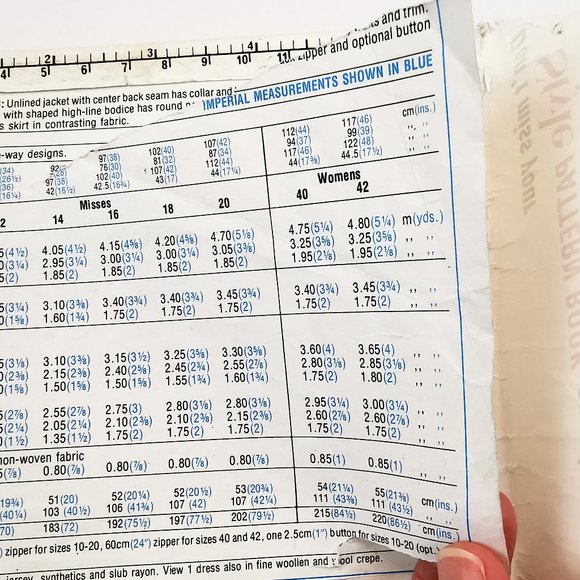 3| 4|
4| 5| 6| 7| 8| 9| 10| 11|
and trim.
zipper and optional button
: Unlined jacket with center back seam has collar and
with shaped high-line bodice has round
IMPERIAL MEASUREMENTS SHOWN IN BLUE
s skirt in contrasting fabric.
-way designs.
(34) 97(38) 102(40) 107(42) 112(44) 117(46) cm(ins.)
(26½) 76(30) 81(32) 87(34) 94(37) 99(39) ,, ,,
(36) 97(38) 102(40) 107(42) 112(44) 117(46) 122(48) ,, ,,
(16¼) 42(16½) 42.5(16¾) 43(17) 44(17¼) 44(17⅜) 44.5(17½) ,, ,,
Misses Womens
2 14 16 18 20 40 42
5(4½) 4.05(4½) 4.15(4⅝) 4.20(4⅝) 4.70(5⅛) 4.75(5¼) 4.80(5¼) m(yds.)
0(3¼) 2.95(3¼) 3.00(3¼) 3.00(3¼) 3.05(3⅜) 3.25(3⅝) 3.25(3⅝) ,, ,,
5(2) 1.85(2) 1.85(2) 1.85(2) 1.85(2) 1.95(2⅛) 1.95(2⅛) ,, ,,
5(3¼) 3.10(3⅜) 3.40(3¾) 3.40(3¾) 3.45(3¾) 3.40(3¾) 3.45(3¾) ,, ,,
0(1⅝) 1.60(1¾) 1.75(2) 1.75(2) 1.75(2) 1.75(2) 1.75(2) ,, ,,
5(3⅛) 3.10(3⅜) 3.15(3½) 3.25(3⅝) 3.30(3⅝) 3.60(4) 3.65(4) ,, ,,
0(2⅜) 2.15(2⅜) 2.40(2⅝) 2.45(2¾) 2.55(2⅞) 2.80(3⅛) 2.85(3⅛) ,, ,,
0(1⅝) 1.50(1⅝) 1.50(1⅝) 1.55(1¾) 1.60(1¾) 1.75(2) 1.80(2) ,, ,,
5(2⅞) 2.55(2⅞) 2.75(3) 2.80(3⅛) 2.80(3⅛) 2.95(3¼) 3.00(3¼) ,, ,,
5(2¼) 2.05(2¼) 2.10(2⅜) 2.10(2⅜) 2.15(2⅜) 2.60(2⅞) 2.60(2⅞) ,, ,,
0(1½) 1.35(1½) 1.75(2) 1.75(2) 1.75(2) 1.75(2) 1.75(2) ,, ,,
non-woven fabric
5(⅞) 0.80(⅞) 0.80(⅞) 0.80(⅞) 0.80(⅞) 0.85(1) 0.85(1) ,, ,,
(19¾) 51(20) 52(20¼) 52(20½) 53(20¾) 54(21¼) 55(21⅜) cm(ins.)
(40¼) 103 (40½) 106 (41¾) 107 (42) 107 (42¼) 111 (43⅝) 111 (43½) ,, ,,
(70) 183(72) 192(75½) 197(77½) 202(79½) 215(84½) 220(86½) cm(ins.)
) zipper for sizes 10-20, 60cm(24″) zipper for sizes 40 and 42, one 2.5cm(1″) button for sizes 10-20 (opt.)
jersey, synthetics and slub rayon. View 1 dress also in fine woollen and wool crepe.
Don't miss your
Style
PATTERN BOOK